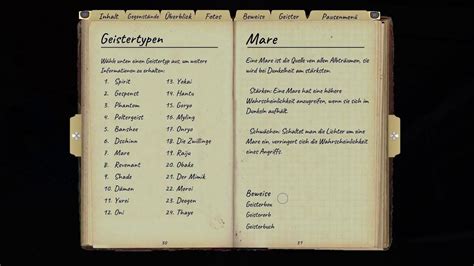 Inhalt Gegenstände Überblick Fotos Beweise Geister Pausenmenü
Geistertypen
Wähle unten einen Geistertyp aus, um weitere
Informationen zu erhalten:
1. Spirit
2. Gespenst
3. Phantom
4. Poltergeist
5. Banshee
6. Dschinn
7. Mare
8. Revenant
9. Shade
10. Dämon
11. Yurei
12. Oni
13. Yokai
14. Hantu
15. Goryo
16. Myling
17. Onryo
18. Die Zwillinge
19. Raiju
20. Obake
21. Der Mimik
22. Moroi
23. Deogen
24. Thaye
30
Mare
Eine Mare ist die Quelle von allen Albträumen, sie
wird bei Dunkelheit am stärksten.
Stärken: Eine Mare hat eine höhere
Wahrscheinlichkeit anzugreifen, wenn sie sich im
Dunkeln aufhält.
Schwächen: Schaltet man die Lichter um eine
Mare ein, verringert sich die Wahrscheinlichkeit
eines Angriffs.
Beweise
Geisterbox
Geisterorb
Geisterbuch